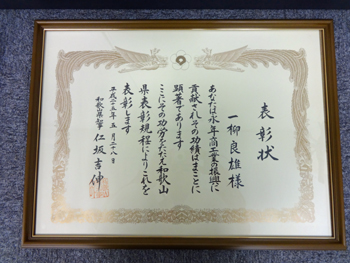 表彰状
一柳良雄様
あなたは永年商工業の振興に
貢献されその功績はまことに
顕著であります
ここにその功労をたたえ和歌山
県表彰規程によりこれを
表彰します
平成二十三年五月二十六日
和歌山県知事 仁坂吉伸